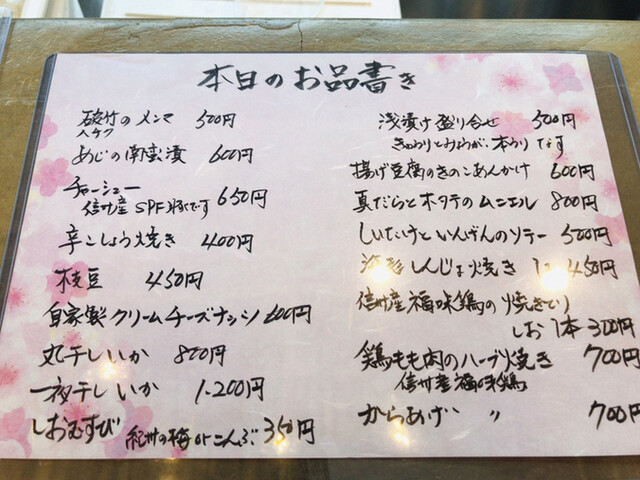 本日のお品書き
破竹のメンマ 500円
ハチク
あじの南蛮漬 600円
チャーシュー 650円
信州産SPF豚です
辛こしょう焼き 400円
枝豆 450円
自家製クリームチーズナッツ 600円
丸干しいか 800円
一夜干しいか 1.200円
しおむすび 紀州の梅orこんぶ 350円
浅漬け盛り合せ 500円
きゅうりとみょうが、本うりです
揚げ豆腐のきのこあんかけ 600円
真だらとホタテのムニエル 800円
しいたけといんげんのソテー 500円
しんじょ焼き 450円
信州産福味鶏の焼きとり
しお 1本300円
鶏もも肉のハーブ焼き 700円
信州産福味鶏
からあげ 〃 700円